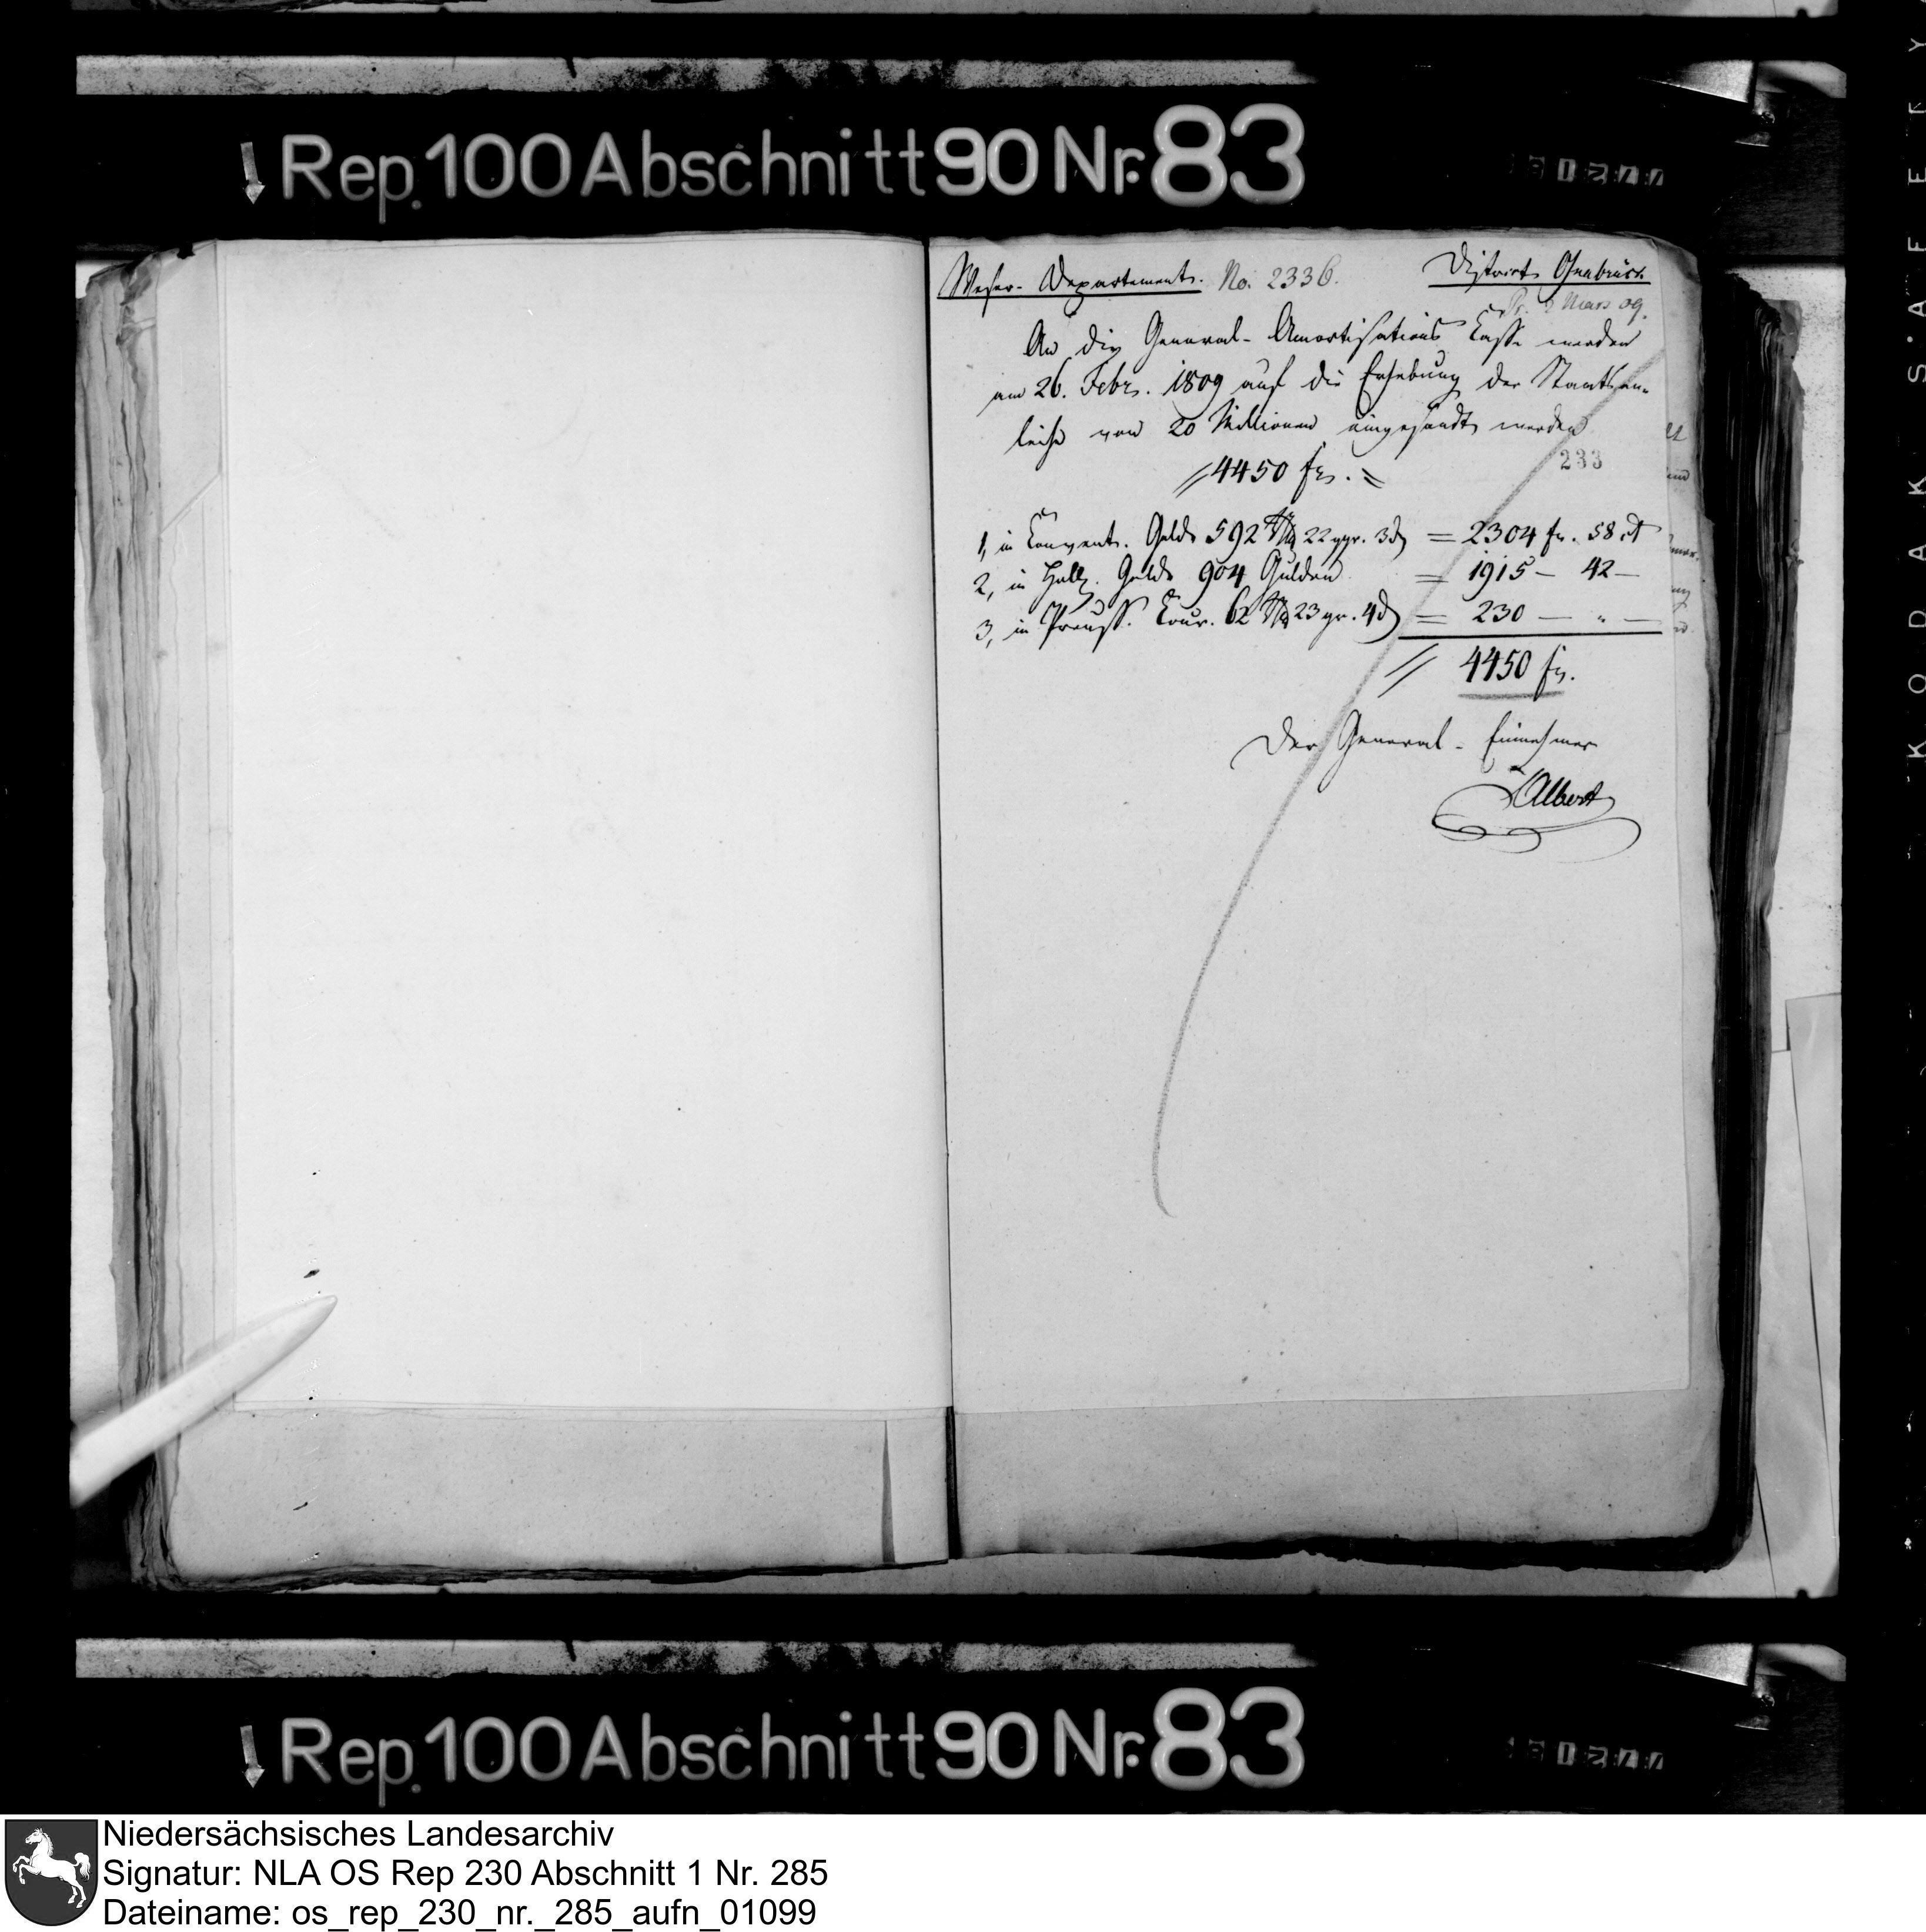 Rep. 100 Abschnitt 90 Nr. 83
Weser-Departement. No. 2336. District Osnabrück.
Pr. 2 Mars 09.
An die General-Amortisations Casse werden
am 26. Febr. 1809 auf die Erhebung der Staatsan-
leihe von 20 Millionen eingesandt werden
233
//4450 frs. =
1, in Convent. Gelde 592 Rthlr 22 ggr. 3 d = 2304 fr. 58 ct
2, in Holl. Gelde 904 Gulden = 1915 — 42 —
3, in Preuss. Cour. 62 Rthlr 23 gr. 4 d = 230 — " —
// 4450 fr.
Der General-Einnehmer
Albert
Rep. 100 Abschnitt 90 Nr. 83
Niedersächsisches Landesarchiv
Signatur: NLA OS Rep 230 Abschnitt 1 Nr. 285
Dateiname: os_rep_230_nr._285_aufn_01099
KODAK SAFETY